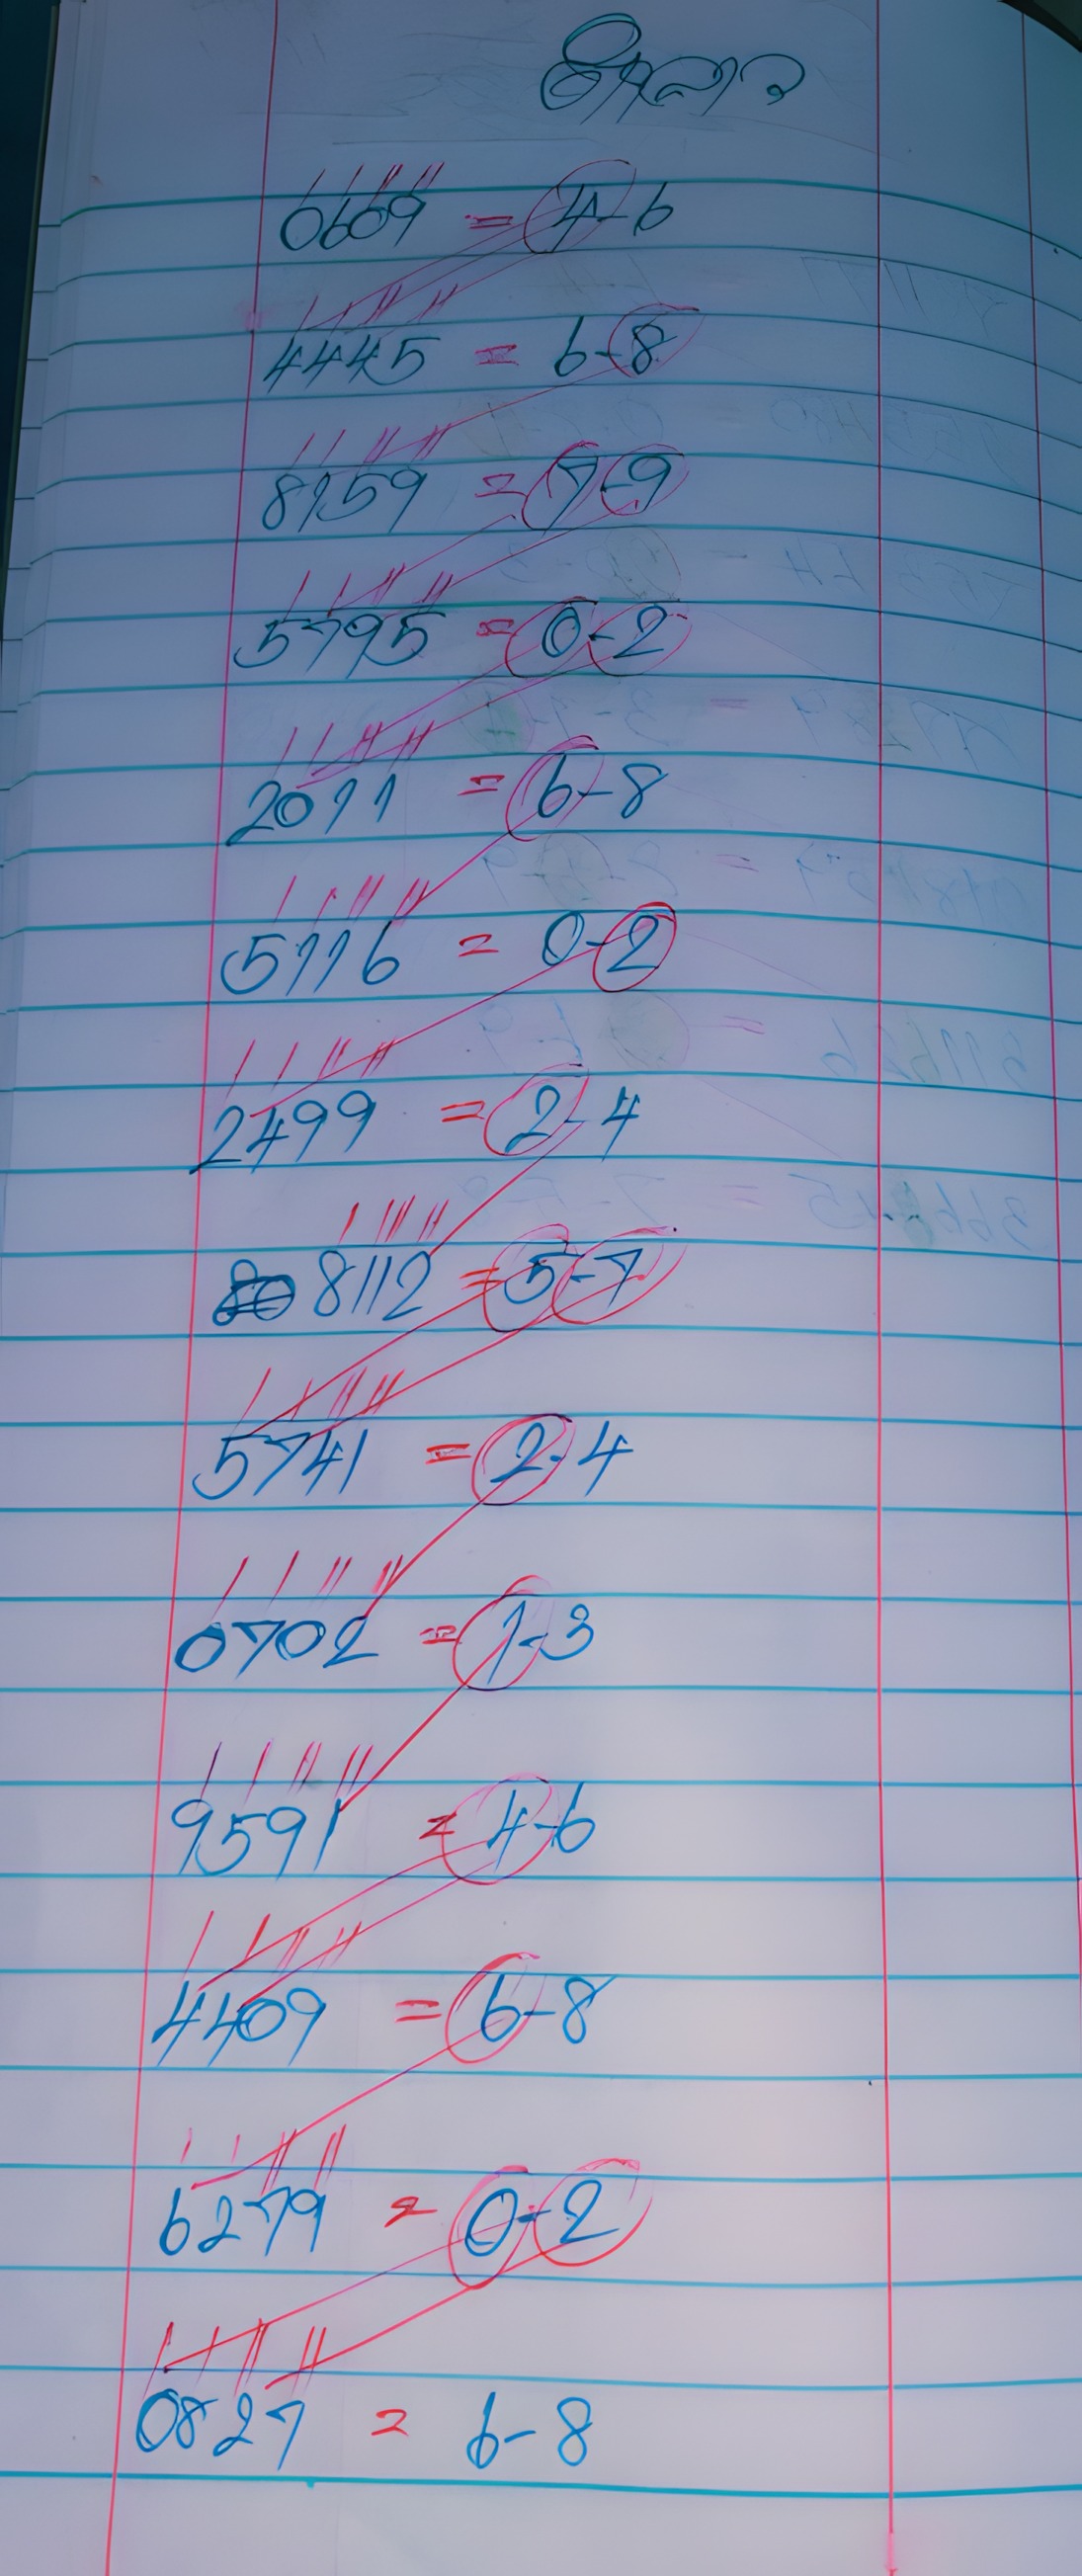 ຮັກລາວ
0609 = 4-6
4445 = 6-8
8159 = 7-9
5795 = 0-2
2011 = 6-8
5116 = 0-2
2499 = 2-4
8112 = 5-7
5741 = 2-4
0702 = 1-3
9591 = 4-6
4409 = 6-8
6279 = 0-2
0827 = 6-8